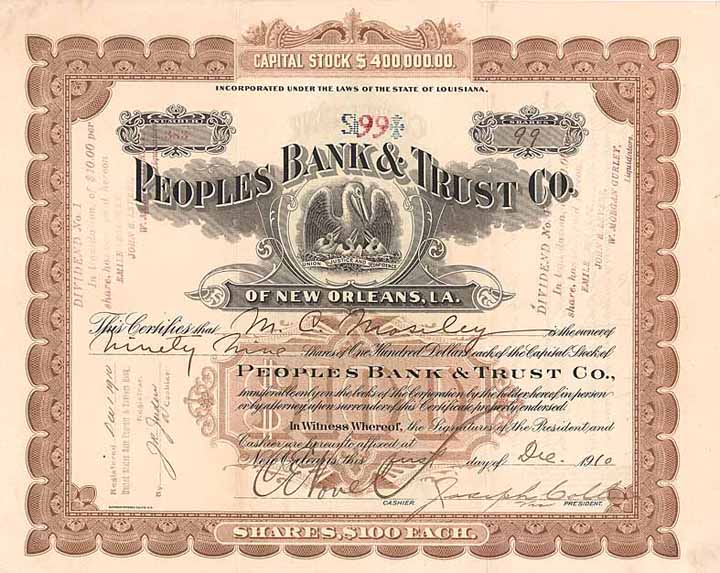 CAPITAL STOCK $400,000.00.
INCORPORATED UNDER THE LAWS OF THE STATE OF LOUISIANA.
$99$
383
SHARES
99
PEOPLES BANK & TRUST CO.
UNION JUSTICE AND CONFIDENCE
OF NEW ORLEANS, LA.
This Certifies that M. C. Moseley is the owner of
Ninety Nine Shares of One Hundred Dollars each of the Capital Stock of
PEOPLES BANK & TRUST CO.,
transferable only on the books of the Corporation by the holder hereof, in person
or by attorney, upon surrender of this Certificate properly endorsed.
In Witness Whereof, the Signatures of the President and
Cashier are hereunto affixed at
New Orleans, this first day of Dec. 1910
CASHIER.
Joseph
PRESIDENT.
SHARES, $100 EACH.
DIVIDEND No. 1
In Liquidation, of $10.00 per
share, has paid hereon
EMILE
JOHN
W.
DIVIDEND No.
In Liquidation,
share, has
EMILE
JOHN
W. MORGAN GURLEY,
Liquidators.
Registered Dec 1 1910
United States Safe Deposit & Savings Bank,
Registrar.
By
Cashier